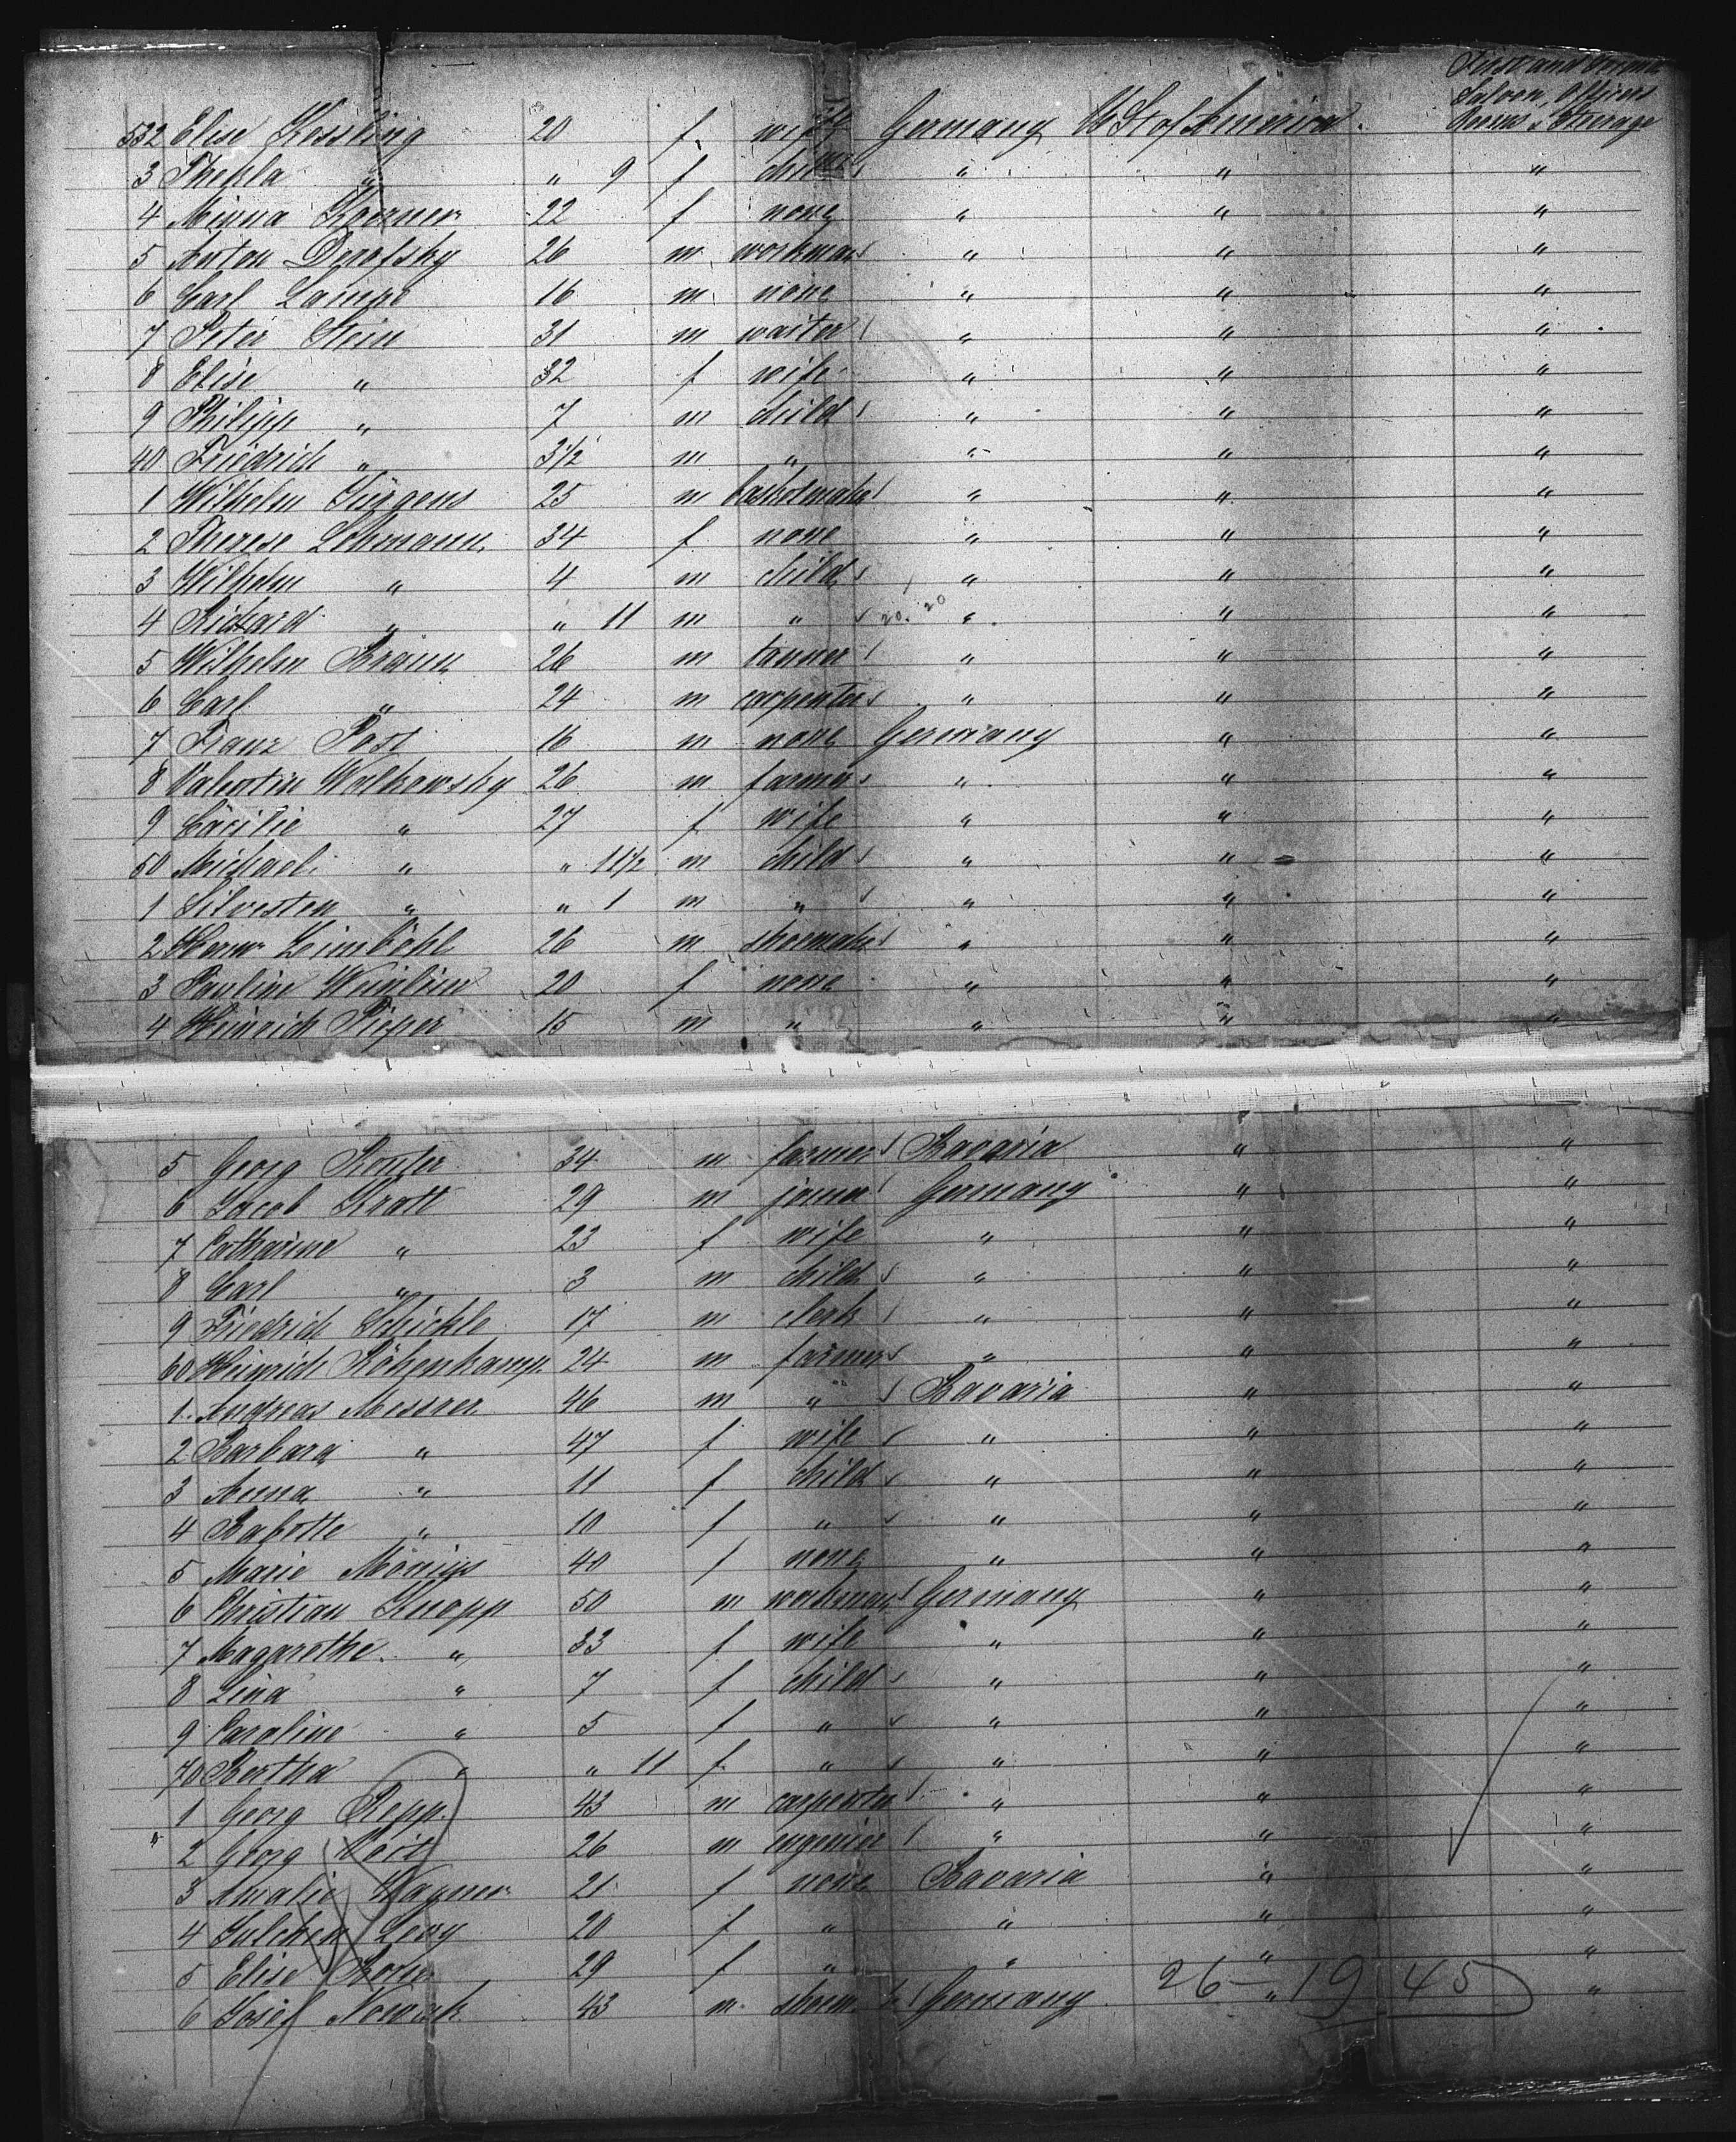 First and Second
Saloon, Officers
532 Elise Kessling 20 f wife Germany U St of America Rooms & Steerage
3 Thekla " " 9 f child " " "
4 Minna Koerner 22 f none " " "
5 Anton Derofsky 26 m workman " " "
6 Carl Lampe 16 m none " " "
7 Peter Stein 31 m waiter " " "
8 Elise " 32 f wife " " "
9 Philipp " 7 m child " " "
40 Friedrich " 3 1/2 m " " " "
1 Wilhelm Jürgens 25 m basketmaker " " "
2 Therese Lehmann 34 f none " " "
3 Wilhelm " 4 m child " " "
4 Richard " " 11 m " 20. 20 " " "
5 Wilhelm Braun 26 m tanner " " "
6 Carl " 24 m carpenter " " "
7 Franz Post 16 m none Germany " "
8 Valentin Wolkowsky 26 m farmer " " "
9 Cäcilie " 27 f wife " " "
50 Michael " " 11 1/2 m child " " "
1 Silvesten " " 1 m " " " "
2 Herm Leimböhl 26 m shoemaker " " "
3 Pauline 20 f none " " "
4 Heinrich Pieper 15 m " " " "
5 Georg 34 m farmer Bavaria " "
6 Jacob Kratt 29 m joiner Germany " "
7 Catharine " 23 f wife " " "
8 Carl " 3 m child " " "
9 Friedrich Schickle 17 m clerk " " "
60 Heinrich Köhenkamp 24 m farmer " " "
1 Andreas Messner 46 m " Bavaria " "
2 Barbara " 47 f wife " " "
3 Anna " 11 f child " " "
4 Babette " 10 f " " " "
5 Marie Mönius 40 f none " " "
6 Christian Knapp 50 m workman Germany " "
7 Magarethe " 33 f wife " " "
8 Lina " 7 f child " " "
9 Caroline " 5 f " " " "
70 Bertha " " 11 f " " " "
1 Georg Repp 43 m carpenter " " "
2 Georg Veit 26 m engenier " " "
3 Amalie Wagner 21 f none Bavaria " "
4 Julchen Levy 20 f " " " "
5 Elise 29 f " " " "
6 Josef Nowak 43 m Germany " "
26 - 19 45